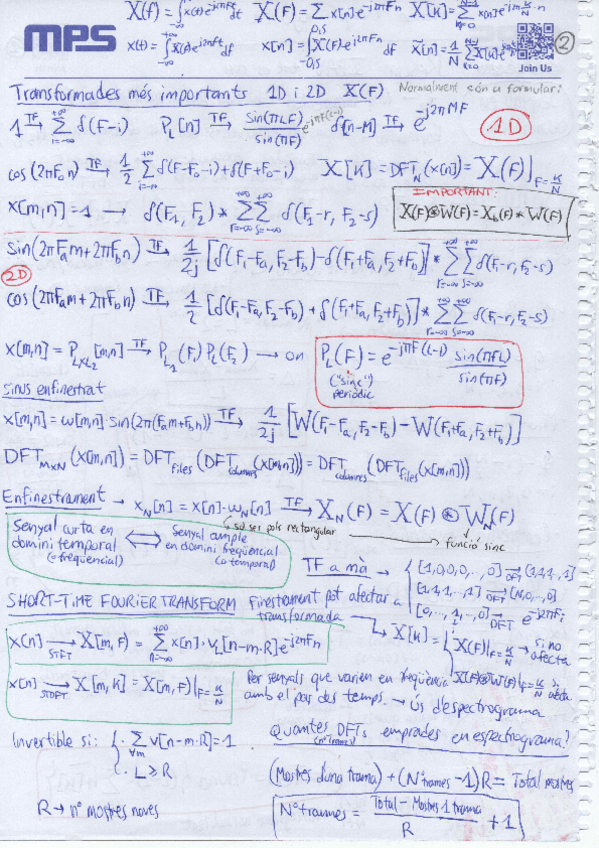 X(f) = ∫_{-∞}^{+∞} x(t) e^{-j2πft} dt   X(F) = Σ x[n] e^{-j2πFn}   X[k] = Σ_{n=0}^{N-1} x[n] e^{-j2π k/N n}
mps
x(t) = ∫_{-∞}^{+∞} X(f) e^{j2πft} df   x[n] = ∫_{-0,5}^{0,5} X(F) e^{j2πFn} dF   x̃[n] = 1/N Σ_{k=0}^{N-1} X[k]
②
Join Us
Transformades més importants 1D i 2D X(F) Normalment són a formulari
1 →TF Σ_{i=-∞}^{+∞} δ(F-i)   P_L[n] →TF sin(πLF)/sin(πF) e^{-jπF(L-1)}   δ[n-M] →TF e^{-j2πMF}   1D
cos(2πF₀n) →TF 1/2 Σ_{i=-∞}^{+∞} δ(F-F₀-i)+δ(F+F₀-i)   X[k] = DFT_N(x[n]) = X(F)|_{F=k/N}
IMPORTANT:
x[m,n]=1 → δ(F₁,F₂) * Σ_{r=-∞}^{+∞} Σ_{s=-∞}^{+∞} δ(F₁-r, F₂-s)   X(F)⊛W(F) = X_b(F) * W(F)
sin(2πF_a m + 2πF_b n) →TF 1/2j [δ(F₁-F_a, F₂-F_b) - δ(F₁+F_a, F₂+F_b)] * Σ_{r=-∞}^{+∞} Σ_{s=-∞}^{+∞} δ(F₁-r, F₂-s)
2D
cos(2πF_a m + 2πF_b n) →TF 1/2 [δ(F₁-F_a, F₂-F_b) + δ(F₁+F_a, F₂+F_b)] * Σ_{r=-∞}^{+∞} Σ_{s=-∞}^{+∞} δ(F₁-r, F₂-s)
x[m,n] = P_{L₁xL₂}[m,n] →TF P_{L₁}(F₁) P_{L₂}(F₂) → on P_L(F) = e^{-jπF(L-1)} sin(πFL)/sin(πF)
("sinc")
periòdic
sinus enfinestrat
x[m,n] = w[m,n] sin(2π(F_a m+F_b n)) →TF 1/2j [W(F₁-F_a, F₂-F_b) - W(F₁+F_a, F₂+F_b)]
DFT_{MxN}(x[m,n]) = DFT_{files}(DFT_{columnes}(x[m,n])) = DFT_{columnes}(DFT_{files}(x[m,n]))
Enfinestrament → x_N[n] = x[n]·w_N[n] →TF X_N(F) = X(F) ⊛ W_N(F)
sol ser pols rectangular
funció sinc
Senyal curta en domini temporal (o freqüencial) ⟺ Senyal ample en domini freqüencial (o temporal)
TF a mà → { [1,0,0,0,...,0] →DFT [1,1,1,..,1]
[1,1,1,...,1] →DFT [N,0,...,0]
[0,...,1,..,0] →DFT e^{-j2πFi}
SHORT-TIME FOURIER TRANSFORM
Finestrament pot afectar a transformada
→ X[k] = { X(F)|_{F=k/N} → si no afecta
X(F)⊛W(F)|_{F=k/N} si afecta
x[n] →STFT X[m,F) = Σ_{n=-∞}^{+∞} x[n]·v_L[n-m·R] e^{-j2πFn}
x[n] →STDFT X[m,k] = X[m,F)|_{F=k/N}
Per senyals que varien en freqüència
amb el pas des temps. → Ús d'espectrograma
Invertible si: { · Σ_{∀m} v[n-m·R] = 1
· L ≥ R
Quantes DFTs emprades en espectrograma?
(nº trames)
(Mostres d'una trama) + (Nº trames - 1) R = Total mostres
R → nº mostres noves
Nº trames = (Total - Mostres 1 trama)/R + 1